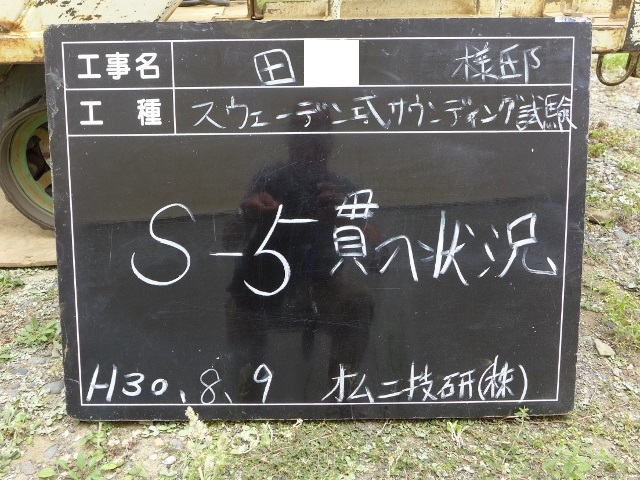 工事名 田 様邸
工種 スウェーデン式サウンディング試験
S-5 貫入状況
H30.8.9 オムニ技研(株)